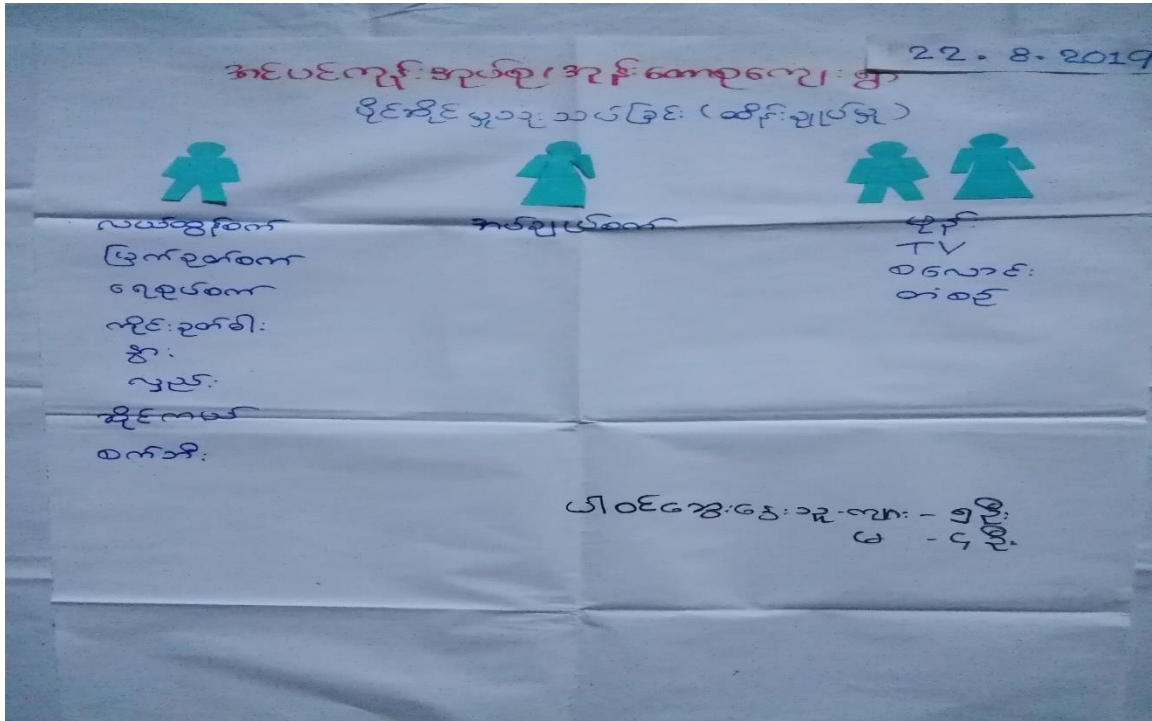 22.8.2019
အင်ပင်ကုန်းအုပ်စု၊ အုန်းတောစုကျေးရွာ
ပိုင်ဆိုင်မှုသုံးသပ်ခြင်း (ထိန်းချုပ်မှု)
လယ်ထွန်စက်
မြက်ခုတ်စက်
ရေစုပ်စက်
ကိုင်းခုတ်ဓါး
နွား
လှည်း
ဆိုင်ကယ်
စက်ဘီး
အပ်ချုပ်စက်
ဖုန်း
TV
စလောင်း
တံစဉ်
ပါဝင်ဆွေးနွေးသူ-ကျား - ၅ဦး
မ - ၄ဦး